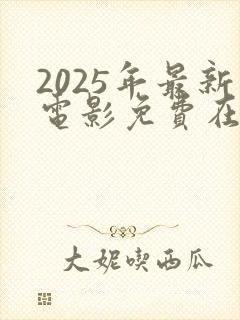 2025年最新
電影免費在
大妮喫西瓜